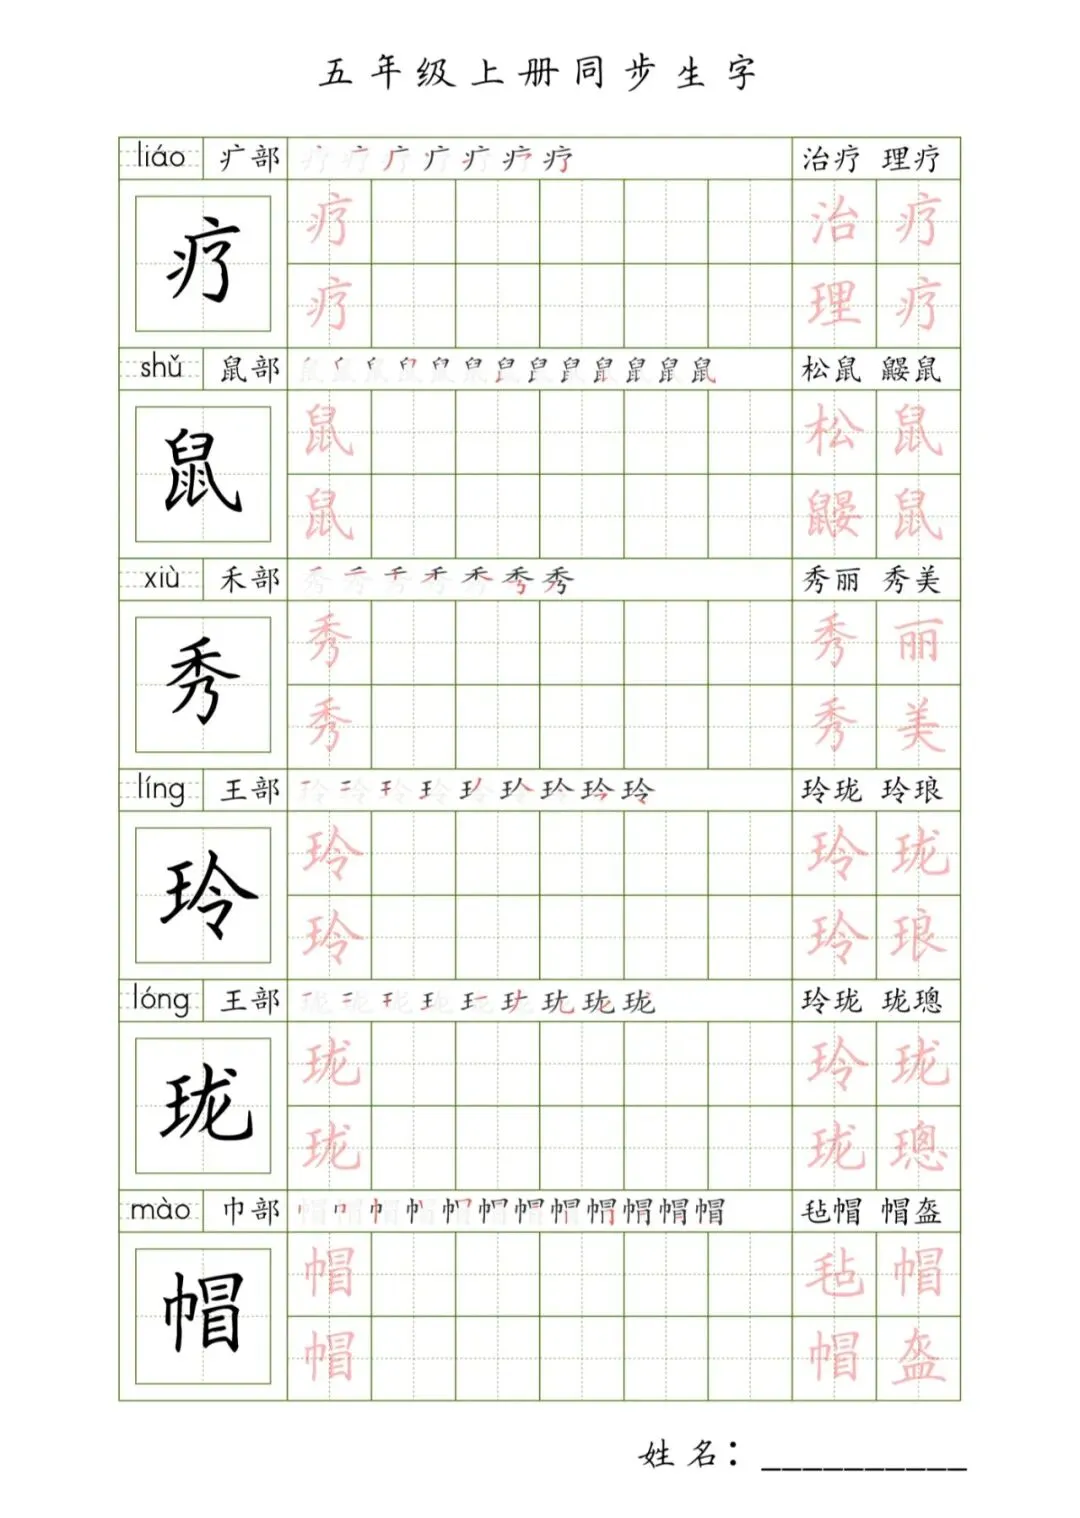 五年级上册同步生字
liáo 疒部 疗疗疗疗疗疗疗 治疗 理疗
疗 疗 治疗
疗 理疗
shǔ 鼠部 鼠鼠鼠鼠鼠鼠鼠鼠鼠鼠鼠鼠鼠 松鼠 鼹鼠
鼠 鼠 松鼠
鼠 鼹鼠
xiù 禾部 秀秀秀秀秀秀秀 秀丽 秀美
秀 秀 秀丽
秀 秀美
líng 王部 玲玲玲玲玲玲玲玲玲 玲珑 玲琅
玲 玲 玲珑
玲 玲琅
lóng 王部 珑珑珑珑珑珑珑珑珑 玲珑 珑璁
珑 珑 玲珑
珑 珑璁
mào 巾部 帽帽帽帽帽帽帽帽帽帽帽帽 毡帽 帽盔
帽 帽 毡帽
帽 帽盔
姓名：__________